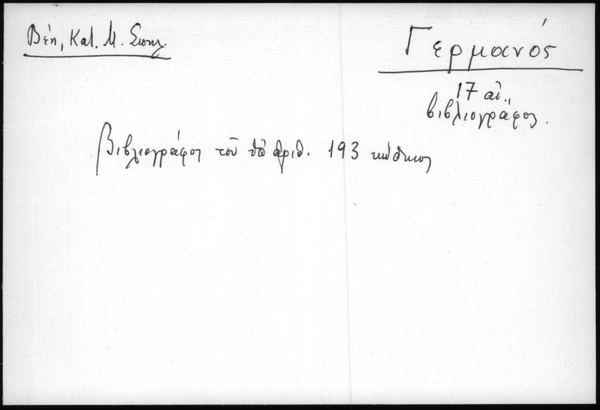 Βέη, Κατ. Μ.
Γερμανός
17 αἰ.
βιβλιογράφος.
Βιβλιογράφος τοῦ ὑπ' ἀριθ. 193 κώδικος